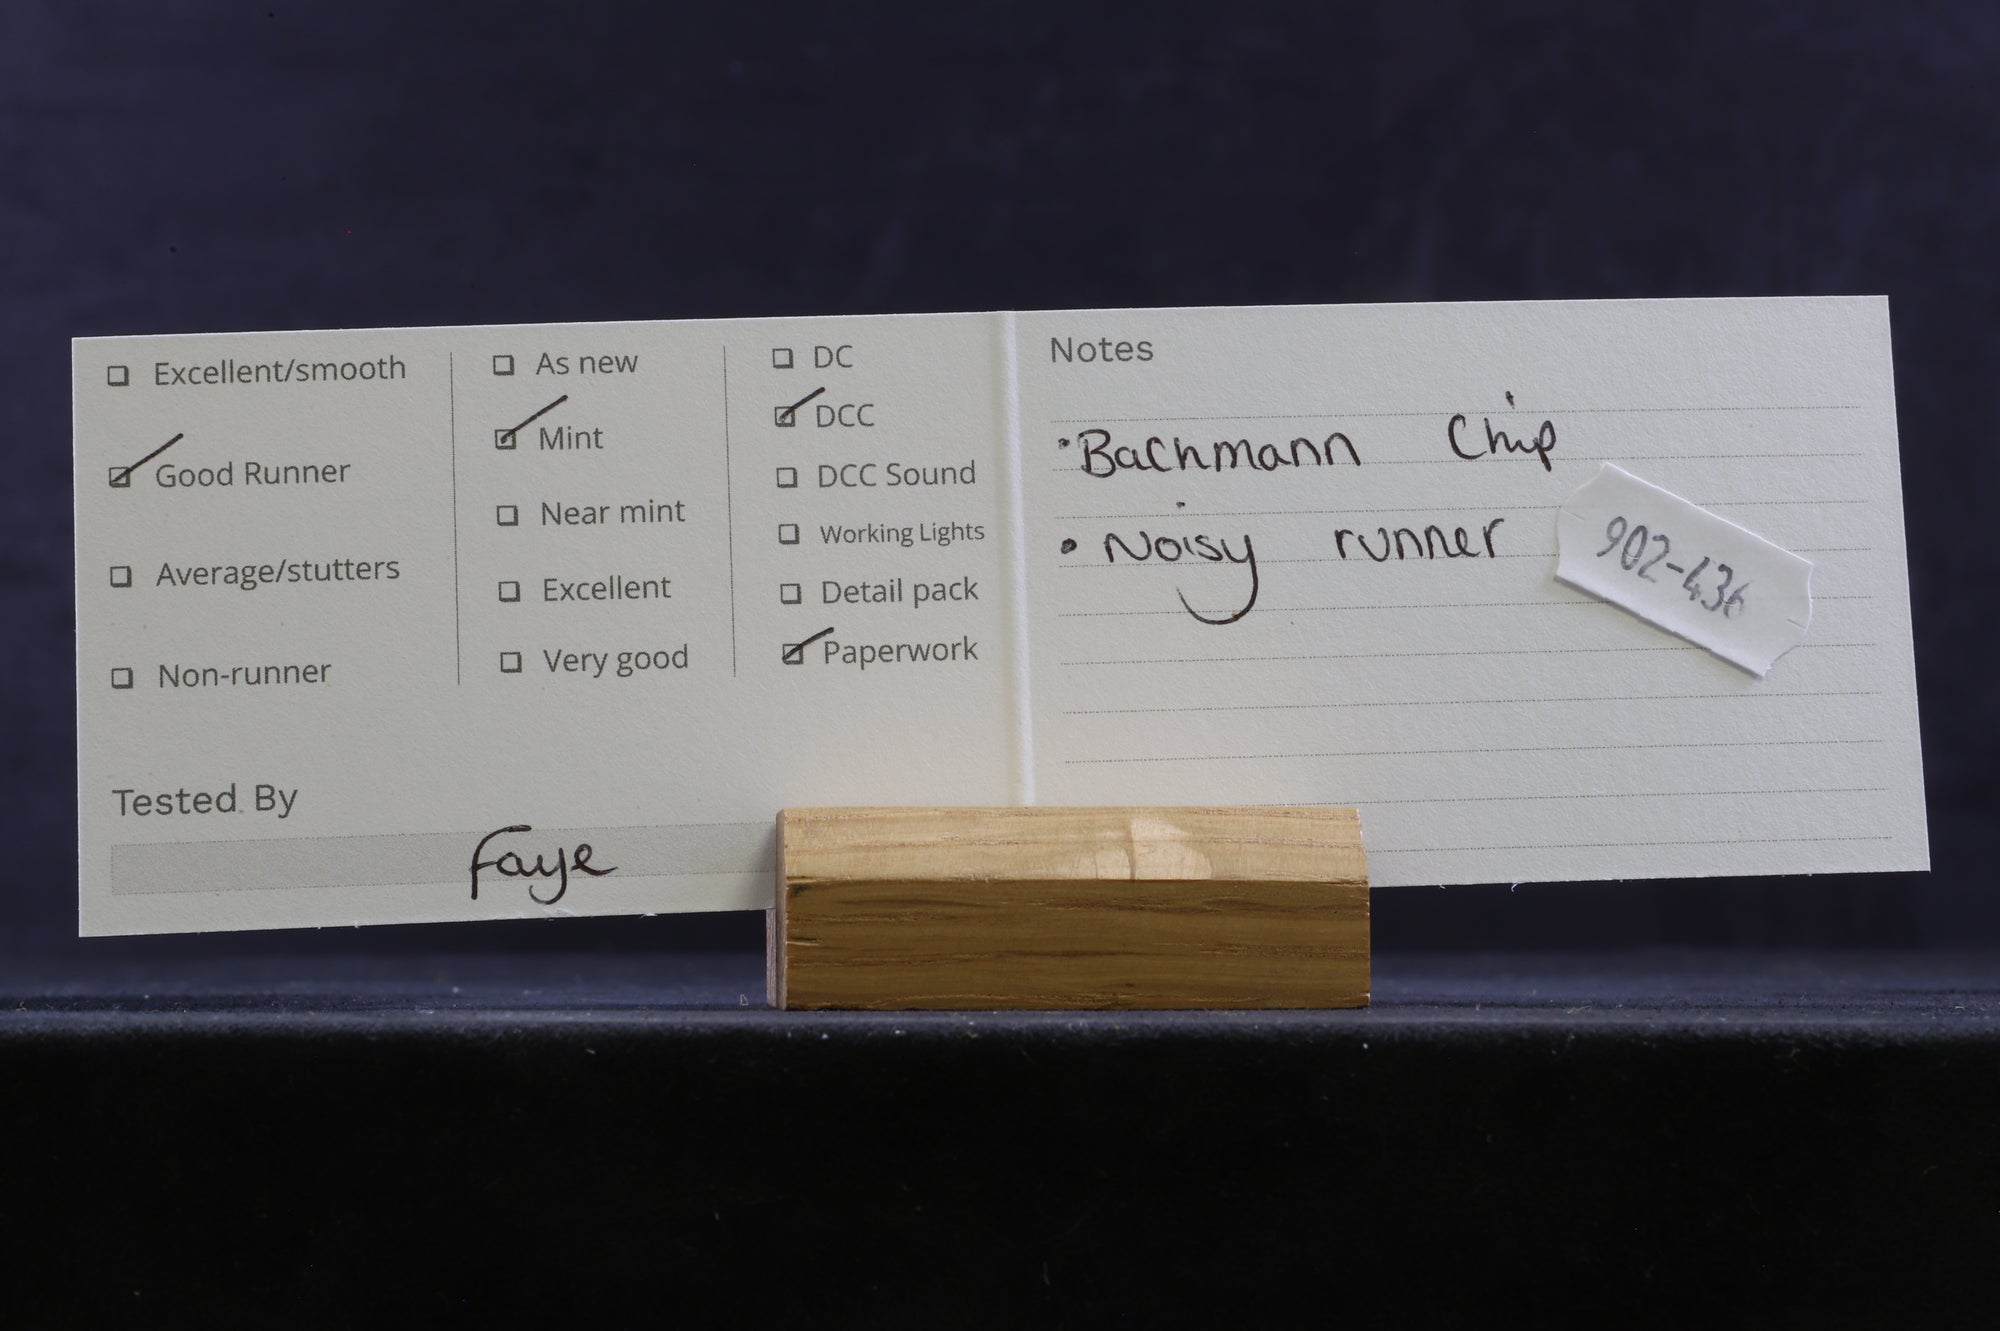 Excellent/smooth
Good Runner
Average/stutters
Non-runner
As new
Mint
Near mint
Excellent
Very good
DC
DCC
DCC Sound
Working Lights
Detail pack
Paperwork
Tested By
Faye
Notes
• Bachmann Chip
• Noisy runner
902-436